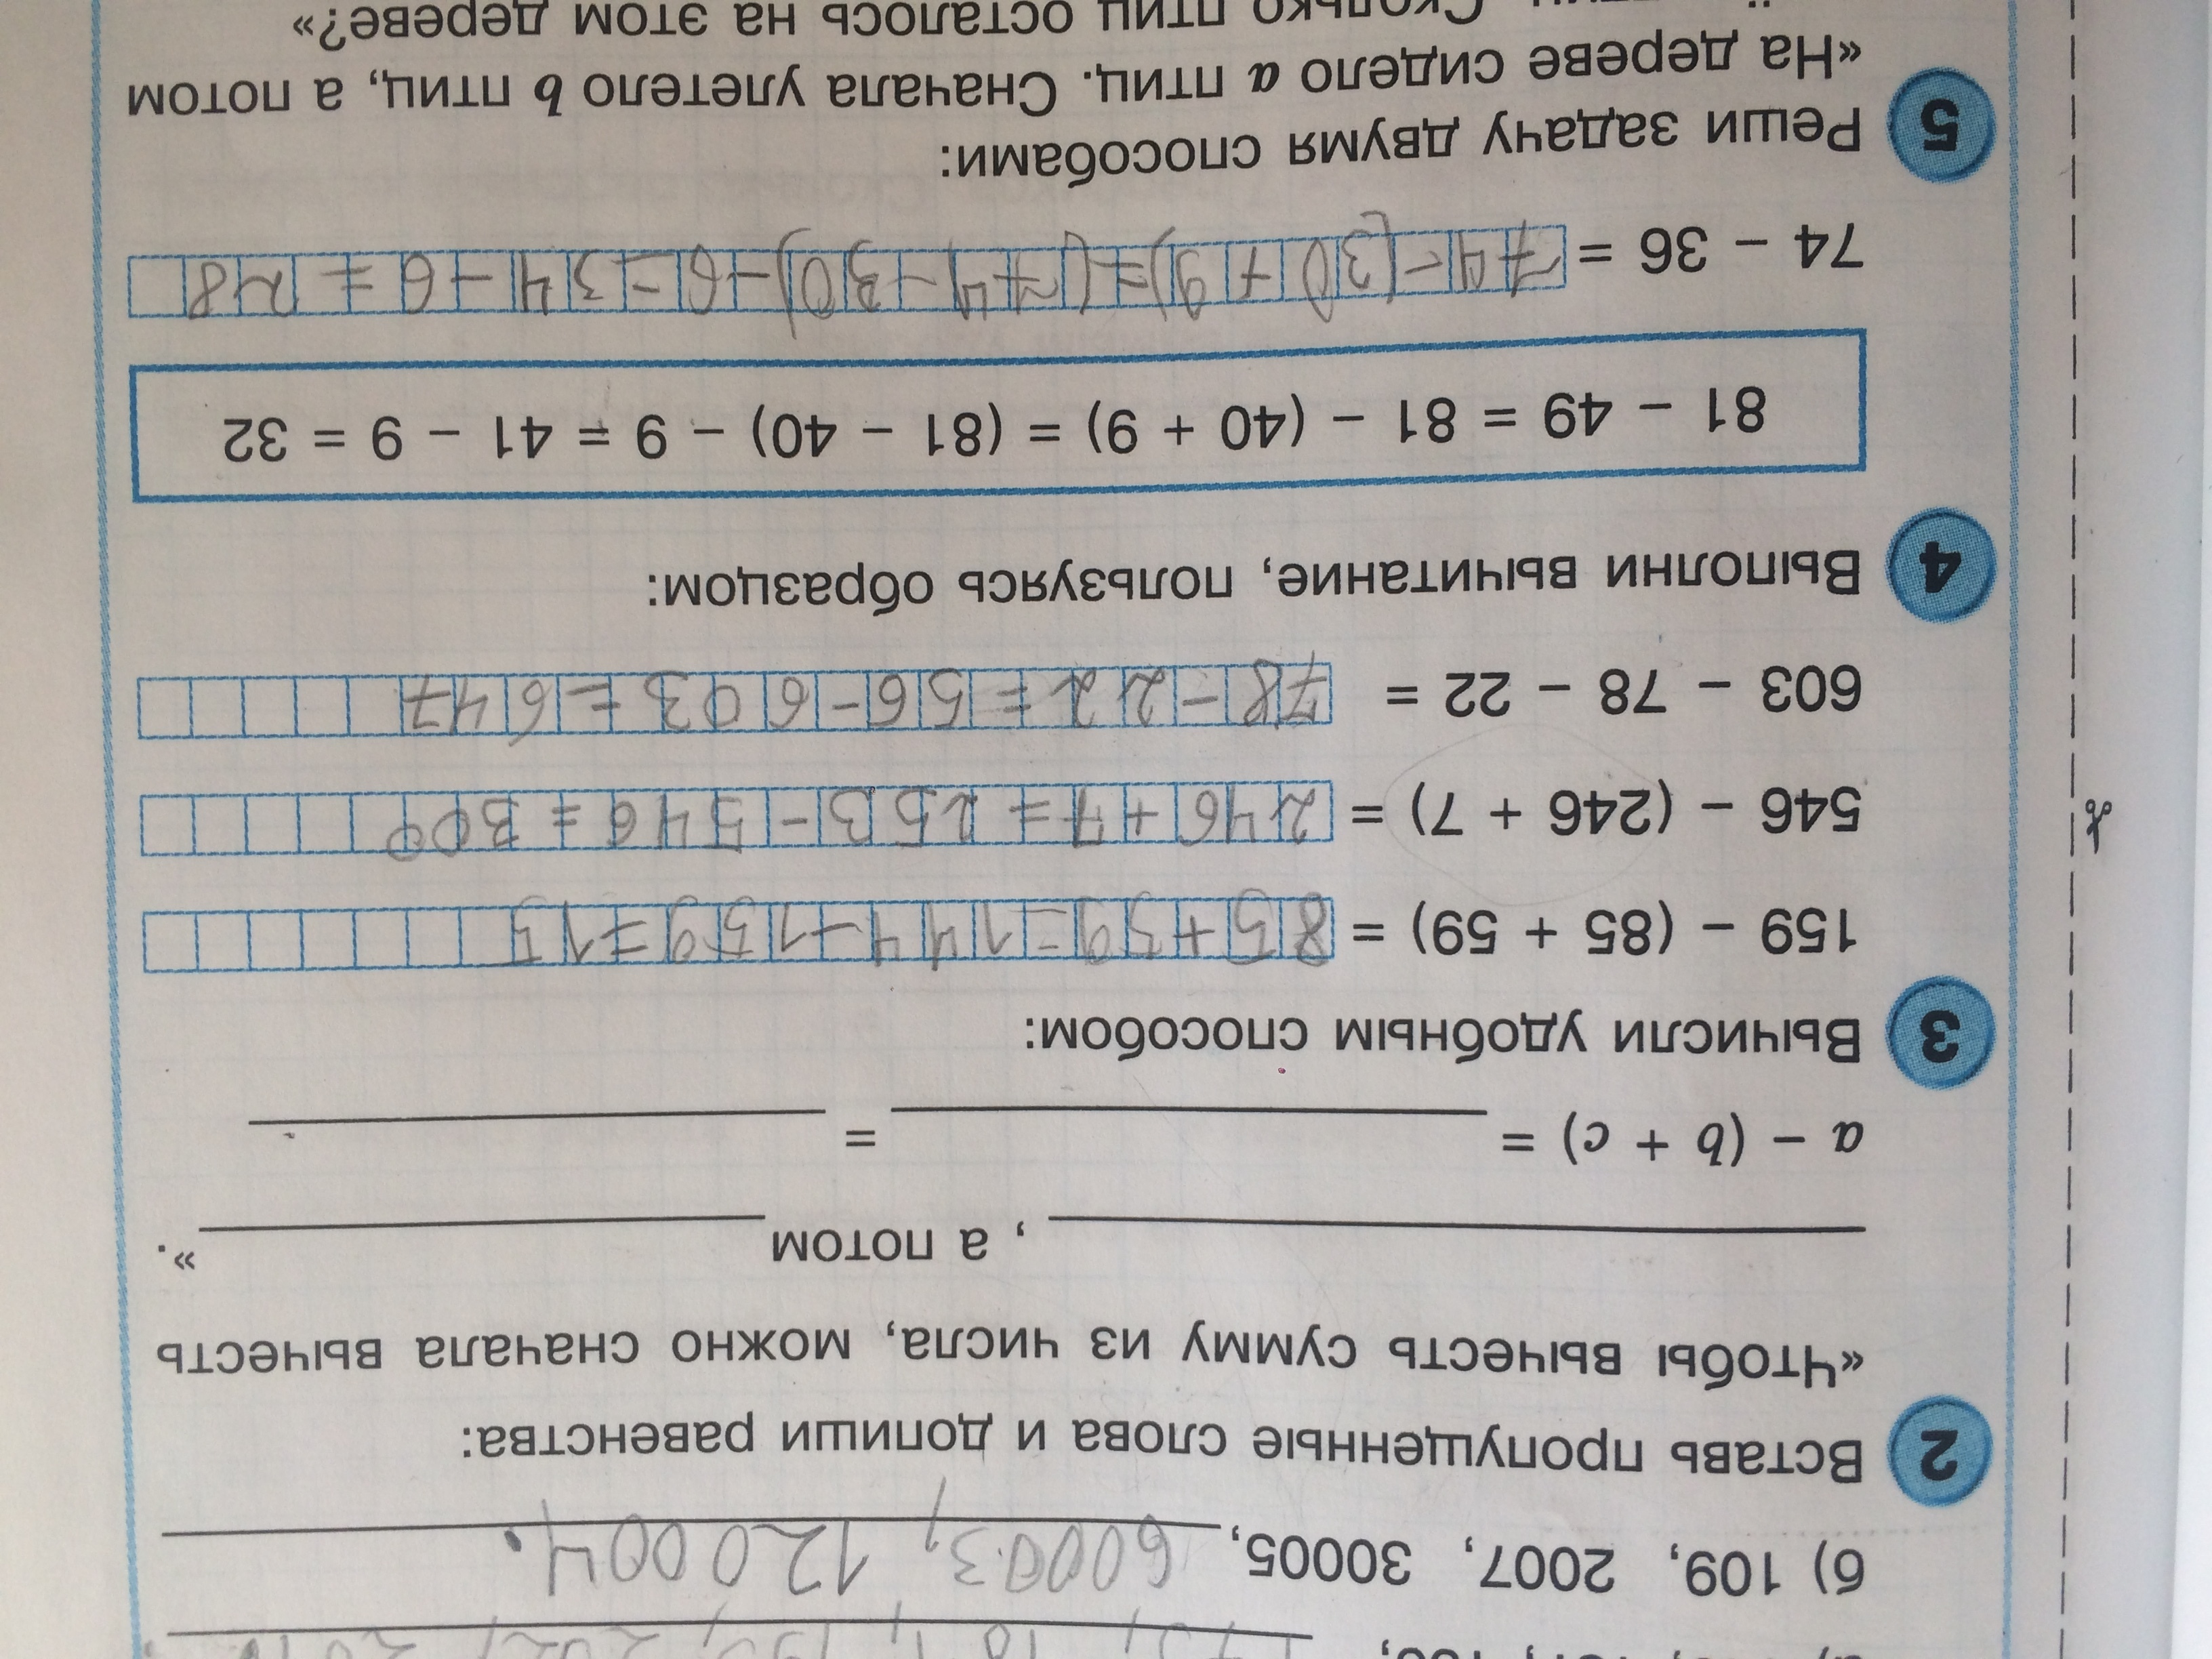 б) 109, 2007, 30005, 60003, 120004.
2 Вставь пропущенные слова и допиши равенства:
«Чтобы вычесть сумму из числа, можно сначала вычесть
, а потом ».
a – (b + c) = =
3 Вычисли удобным способом:
159 – (85 + 59) = 85+59=144-159=15
546 – (246 + 7) = 246+7=253-546=300
603 – 78 – 22 = 78-22=56-603=647
4 Выполни вычитание, пользуясь образцом:
81 – 49 = 81 – (40 + 9) = (81 – 40) – 9 = 41 – 9 = 32
74 – 36 = 74-(30+9)=(74-30)-6=34-6=28
5 Реши задачу двумя способами:
«На дереве сидело a птиц. Сначала улетело b птиц, а потом
Сколько птиц осталось на этом дереве?»